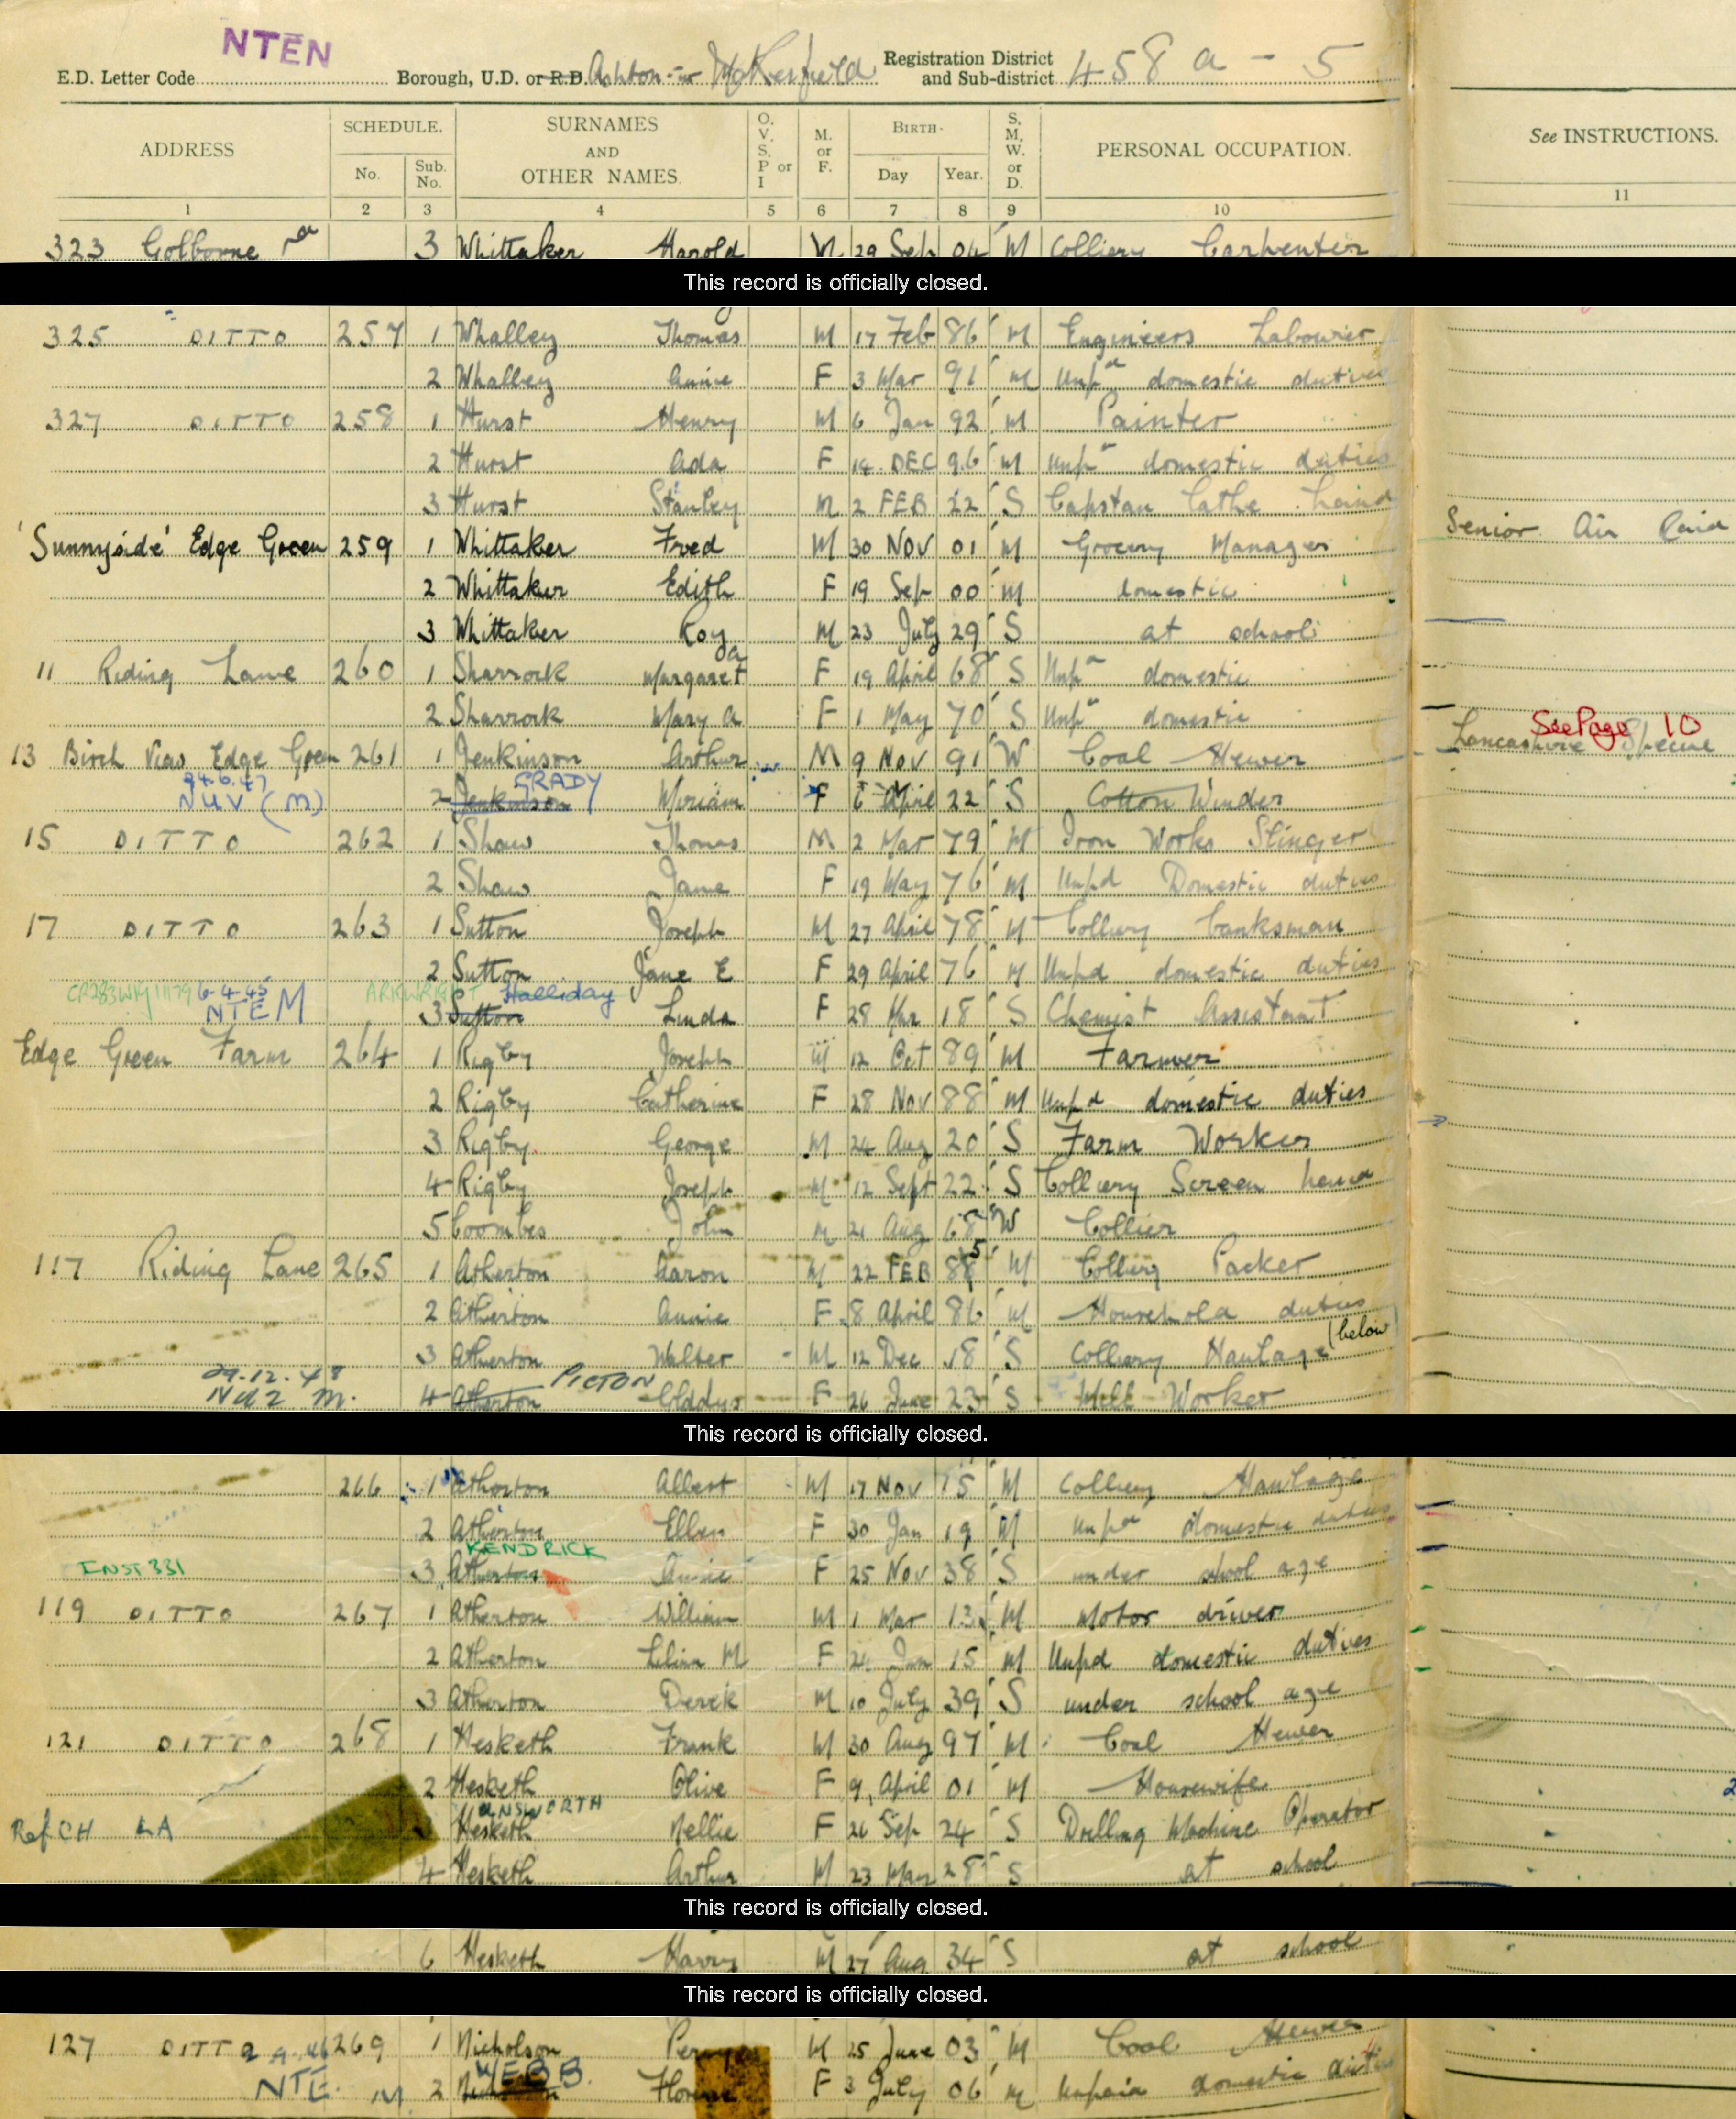 NTEN
E.D. Letter Code Borough, U.D. or R.D. Ashton-in-Makerfield Registration District and Sub-district 458 a - 5
ADDRESS SCHEDULE. No. Sub. No. SURNAMES AND OTHER NAMES. O. V. S. P or I M. or F. BIRTH. Day Year. S. M. W. or D. PERSONAL OCCUPATION. See INSTRUCTIONS.
1 2 3 4 5 6 7 8 9 10 11
323 Golborne rd 3 Whittaker Harold M 29 Sep 04 M Colliery Carpenter
This record is officially closed.
325 DITTO 257 1 Whalley Thomas M 17 Feb 86 M Engineers Labourer
2 Whalley Annie F 3 Mar 91 M Unpd domestic duties
327 DITTO 258 1 Hurst Henry M 6 Jan 92 M Painter
2 Hurst Ada F 14 DEC 96 M Unpd domestic duties
3 Hurst Stanley M 2 FEB 22 S Capstan Lathe hand
'Sunnyside' Edge Green 259 1 Whittaker Fred M 30 NOV 01 M Grocery Manager Senior Air Raid
2 Whittaker Edith F 19 Sep 00 M domestic
3 Whittaker Roy M 23 July 29 S at school
11 Riding Lane 260 1 Sharrock Margaret a F 19 April 68 S Unpd domestic
2 Sharrock Mary A F 1 May 70 S Unpd domestic
See Page 10
13 Birch Vias Edge Green 261 1 Jenkinson Arthur M 9 Nov 91 W Coal Hewer Lancashire
24.6.47 GRADY
NUV (M) 2 Jenkinson Miriam F 6 April 22 S Cotton Winder
15 DITTO 262 1 Shaw Thomas M 2 Mar 79 M Iron Works Slinger
2 Shaw Jane F 19 May 76 M Unpd Domestic duties
17 DITTO 263 1 Sutton Joseph M 27 April 78 M Colliery banksman
2 Sutton Jane E F 29 April 76 M Unpd domestic duties
6.4.45 ARKWRIGHT Halliday
NTE M 3 Sutton Linda F 28 Mar 18 S Chemist Assistant
Edge Green Farm 264 1 Rigby Joseph M 12 Oct 89 M Farmer
2 Rigby Catherine F 28 Nov 88 M Unpd domestic duties
3 Rigby George M 24 Aug 20 S Farm Worker
4 Rigby Joseph M 12 Sept 22 S Colliery Screen hand
5 Coombes John M 21 Aug 68 W Collier
117 Riding Lane 265 1 Atherton Aaron M 22 FEB 88 5 M Colliery Packer
2 Atherton Annie F 8 April 86 M Household duties
3 Atherton Walter M 12 Dec 18 S Colliery Haulage (below
29.12.48 PICTON
NUZ M. 4 Atherton Gladys F 26 June 23 S Mill Worker
This record is officially closed.
266 1 Atherton Albert M 17 Nov 15 M Colliery Haulage
2 Atherton Ellen F 30 Jan 19 M Unpd domestic duties
KENDRICK
INST 331 3 Atherton Annie F 25 Nov 38 S under school age
119 DITTO 267 1 Atherton William M 1 Mar 13 M Motor driver
2 Atherton Lilian M F 21 Jan 15 M Unpd domestic duties
3 Atherton Derek M 10 July 39 S under school age
121 DITTO 268 1 Hesketh Frank M 30 Aug 97 M Coal Hewer
2 Hesketh Olive F 9 April 01 M Housewife
Ref CH LA Hesketh Nellie F 26 Sep 24 S Drilling Machine Operator
4 Hesketh Arthur M 23 May 28 S at school
This record is officially closed.
6 Hesketh Harry M 27 Aug 34 S at school
This record is officially closed.
127 DITTO 269 1 Nicholson M 25 June 03 M Coal Hewer
WEBB
NTE. M 2 F 3 July 06 M Unpaid domestic duties